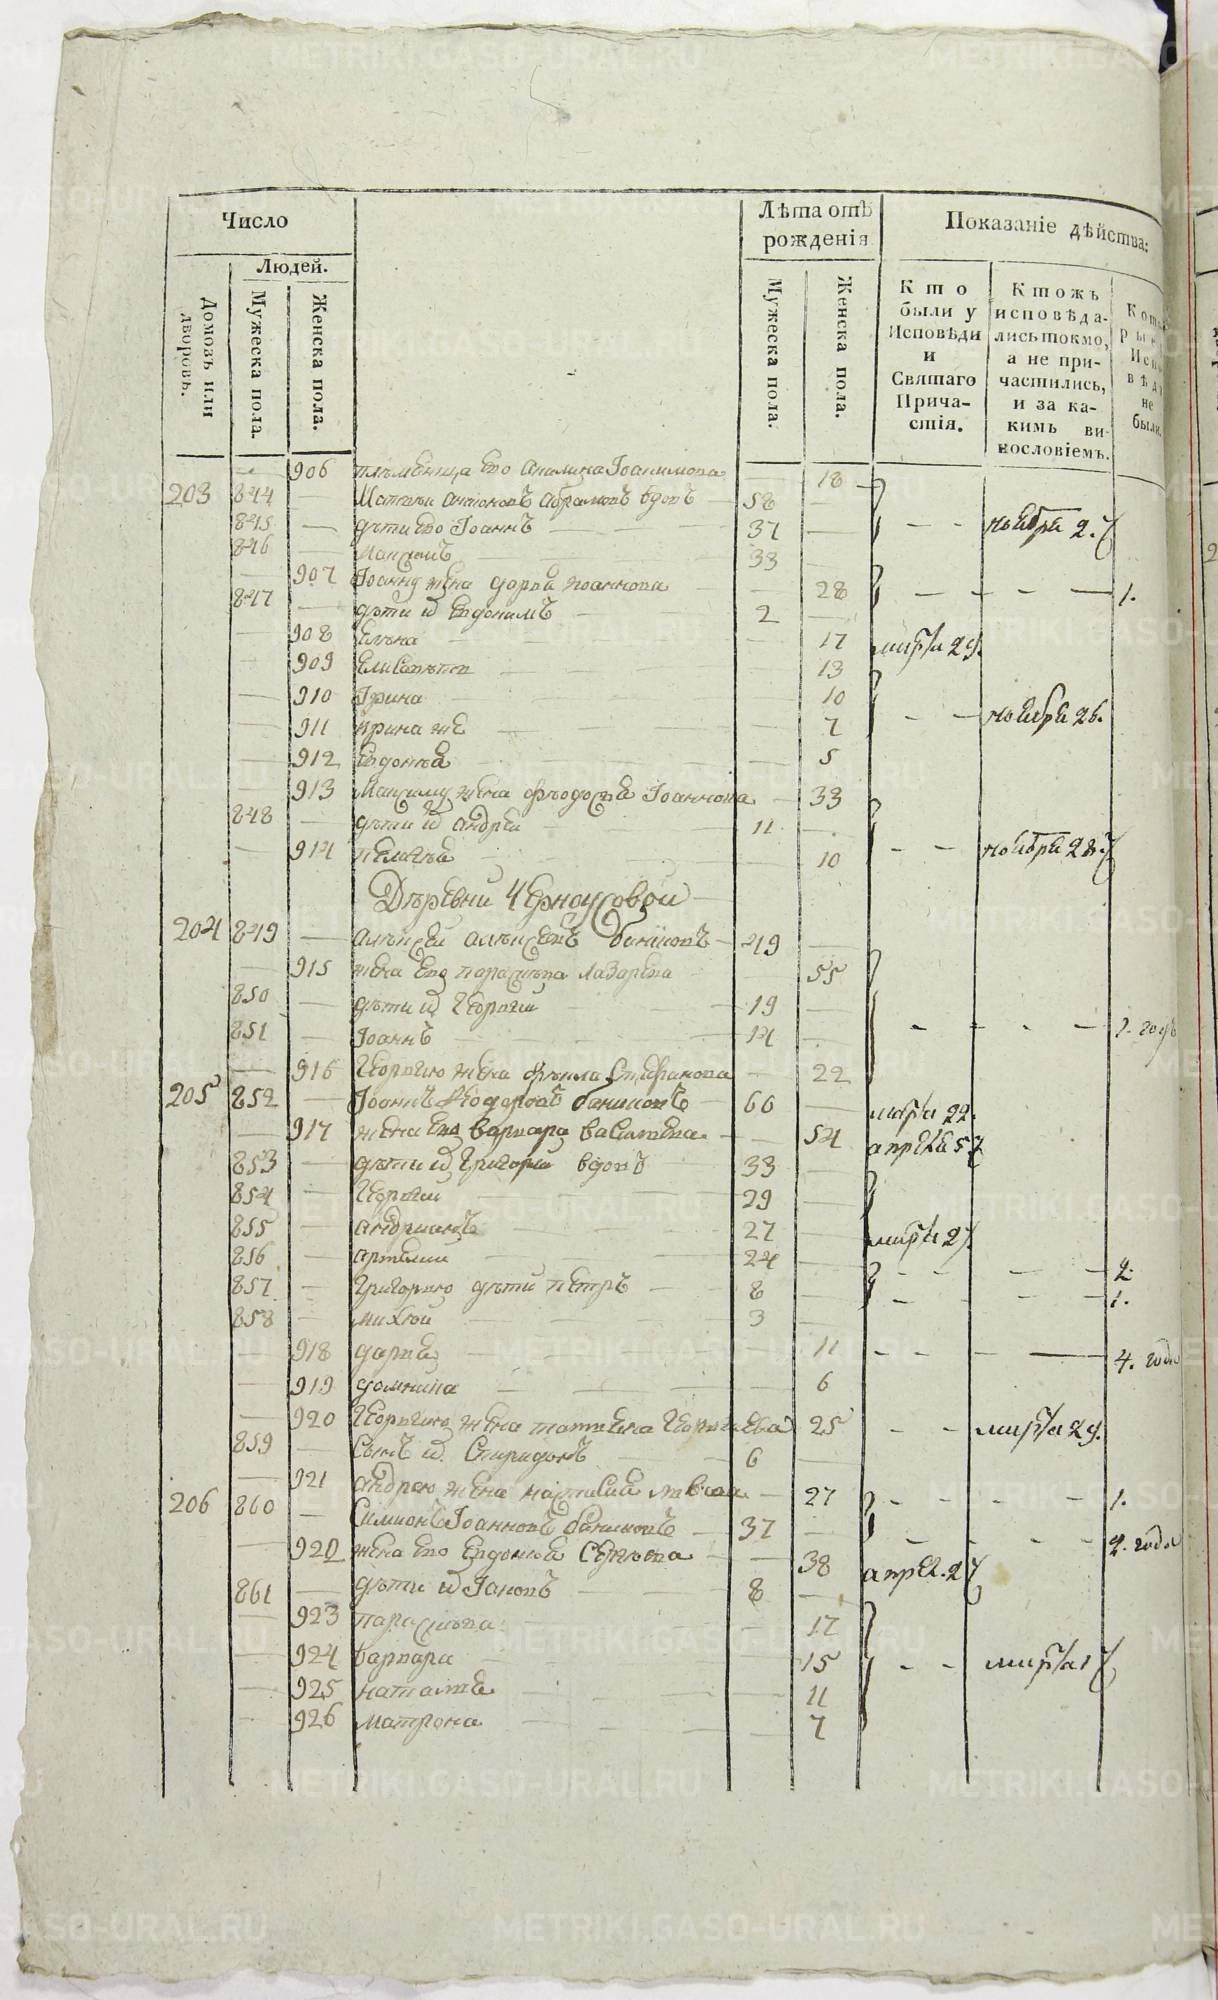 Число
Людей.
Домовъ или дворовъ.
Мужеска пола.
Женска пола.
Лѣта отъ рожденія
Мужеска пола.
Женска пола.
Показаніе дѣйства:
Кто были у Исповѣди и Святаго Причастія.
Ктожъ исповѣдались токмо, а не причастились, и за какимъ винословіемъ.
Которые Исповѣди не были.
906 племѣнница Его Акилина 18
203 844 Абрамовъ вдовъ 58
845 дѣти Его Іоаннъ 37 ноября 27
846 Максимъ 33
907 Іоанну жена дарья 28 1.
847 дѣти их Евдокимъ 2
908 Елена 17 марта 29.
909 Елисавета 13
910 Ірина 10 ноября 26.
911 ирина же 7
912 Евдокѣя 5
913 Максиму жена феодосья Іоаннова 33
848 дѣти их андрей 11
914 пелагея 10 ноября 28
Деревни Черноусовой
204 849 алексей алексеевъ 49
915 жена Его параскева лазарева 55
850 дѣти их Георгий 19
851 Іоаннъ 14 1. годъ
916 Георгию жена фекла Стефанова 22
205 852 Іоаннъ 60 марта 22.
917 жена Его варвара василева 54 апреля 5
853 дѣти их Григорий вдовъ 33
854 Георгий 29
855 андриянъ 27 марта 27.
856 артемий 24 2.
857 Григорию дѣти петръ 8 1.
858 михей 3
918 дарья 11 4. года
919 домнина 6
920 Георгию жена татияна Георгиева 25 марта 29.
859 Сынъ их Спиридонъ 6
921 андрею жена 27 1.
206 860 Симионъ Іоанновъ 37 2. года
920 жена Его Евдокѣя 38 апрел. 2
861 дѣти их Іаковъ 8
923 параскева 17
924 варвара 15 марта 1
925 наталья 11
926 матрона 7
METRIKI.GASO-URAL.RU